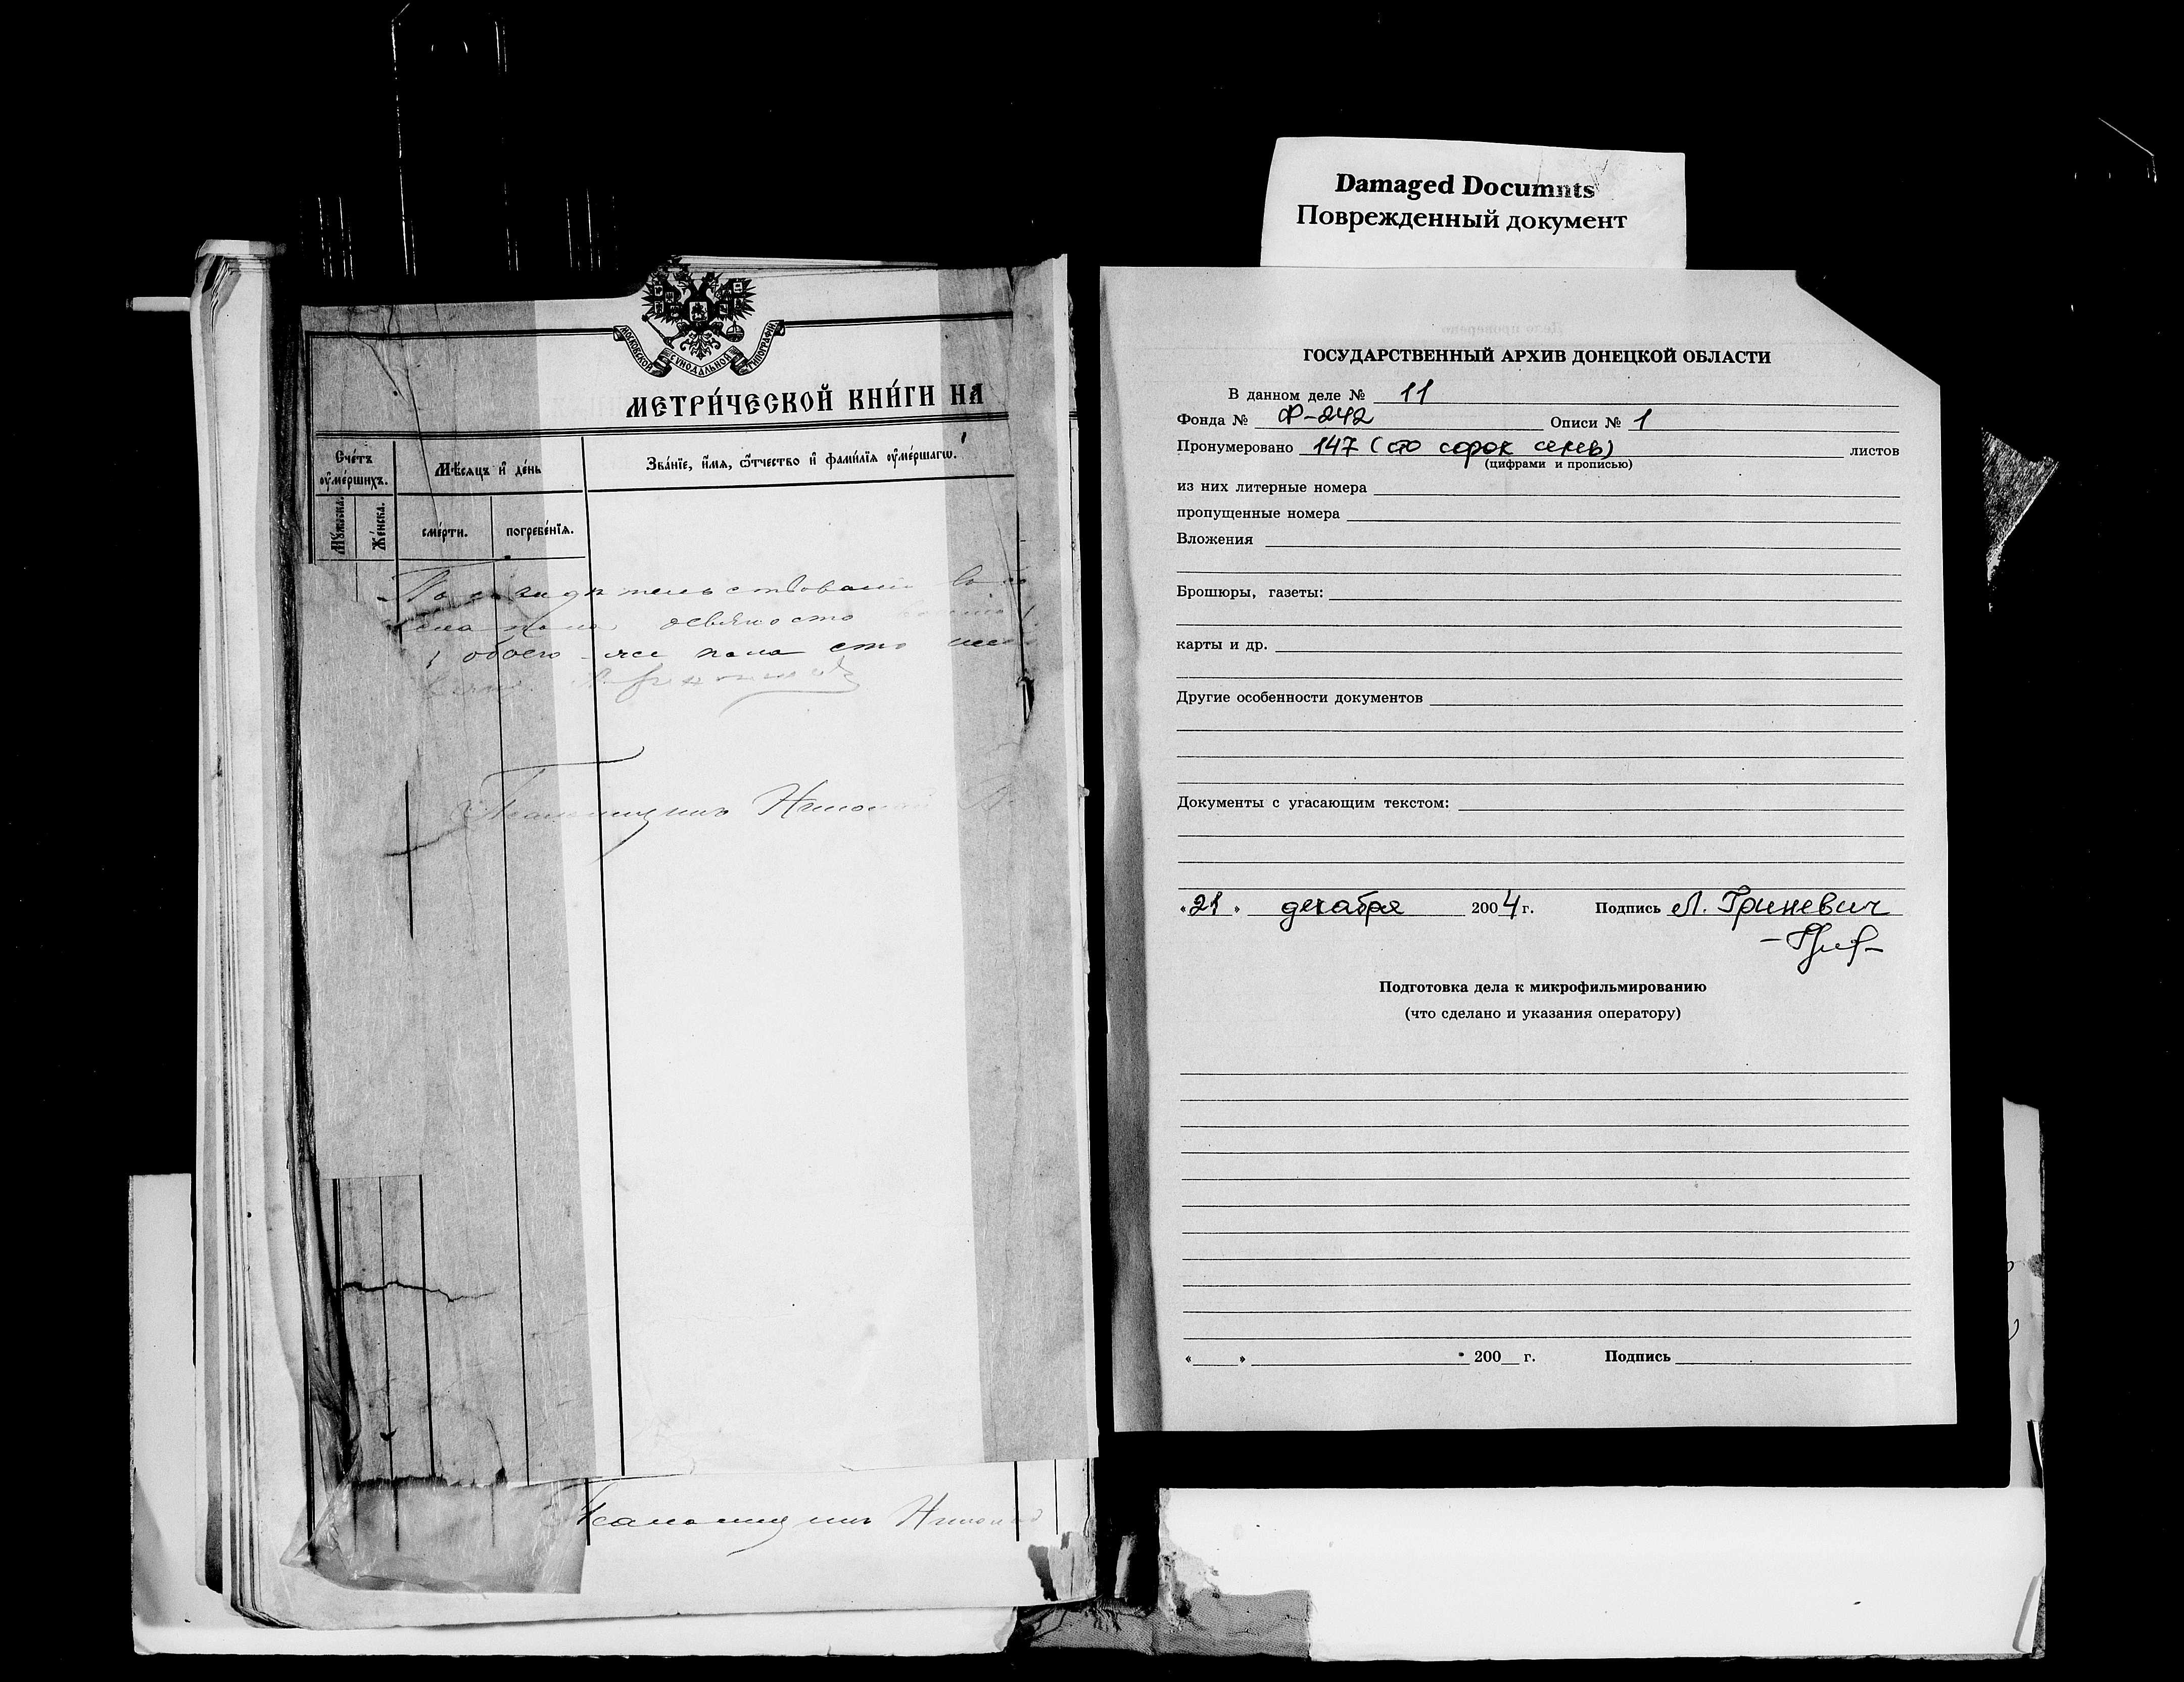 Damaged Documnts
Поврежденный документ
МОСКОВСКОЙ СУНОДАЛЬНОЙ ТИПОГРАФІИ.
МЕТРИ́ЧЕСКОЙ КНИ́ГИ НА
Сче́тъ
оу҆ме́ршихъ.
Мѣ́сяцъ и҆ де́нь
Зва́нїе, и҆́мя, ѻ҆́тчество и҆ фами́лїя оу҆ме́ршагѡ.
Мꙋ́жеска.
Же́нска.
сме́рти.
погребе́нїя.
девяносто
обоего пола сто
Николай
Николай
ГОСУДАРСТВЕННЫЙ АРХИВ ДОНЕЦКОЙ ОБЛАСТИ
В данном деле № 11
Фонда № Ф-242 Описи № 1
Пронумеровано 147 (сто сорок семь) листов
(цифрами и прописью)
из них литерные номера
пропущенные номера
Вложения
Брошюры, газеты:
карты и др.
Другие особенности документов
Документы с угасающим текстом:
«21» декабря 2004 г. Подпись Л. Гриневич
Подготовка дела к микрофильмированию
(что сделано и указания оператору)
« » 200 г. Подпись